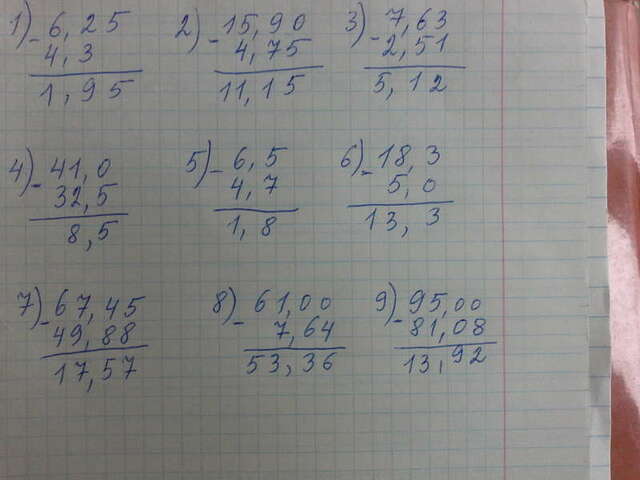 1) - 6,25 2) - 15,90 3) - 7,63
4,3 4,75 2,51
1,95 11,15 5,12
4) - 41,0 5) - 6,5 6) - 18,3
32,5 4,7 5,0
8,5 1,8 13,3
7) - 67,45 8) - 61,00 9) - 95,00
49,88 7,64 81,08
17,57 53,36 13,92